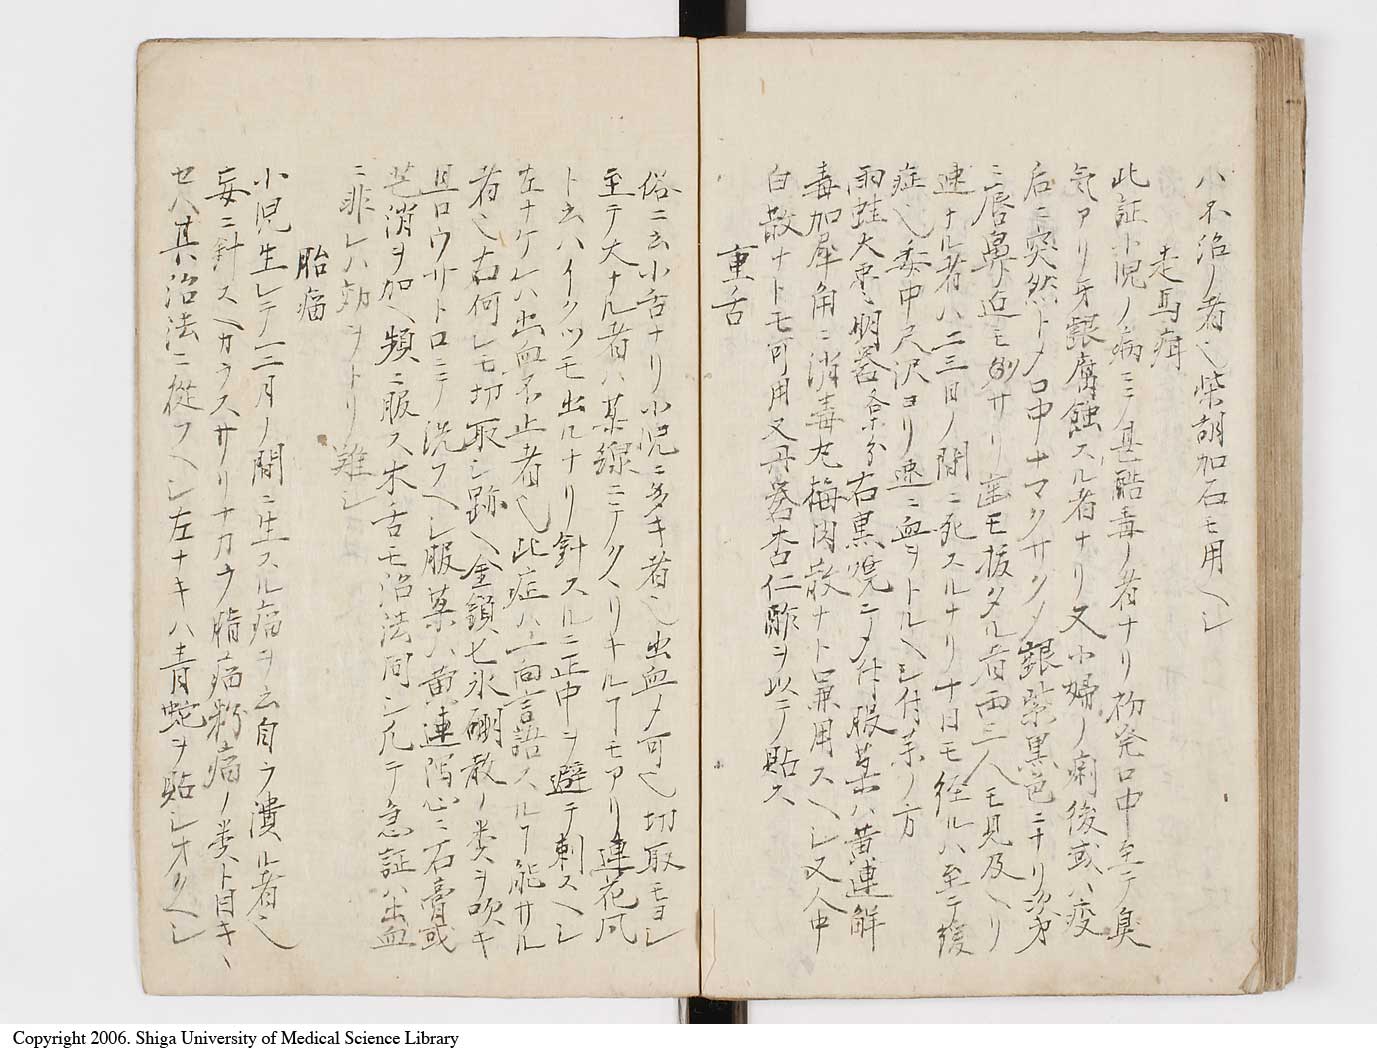 小不治ノ者也柴胡加石モ用ヘシ
走馬疳
此証小児ノ病ニメ甚酷毒ノ者ナリ初発口中至テ臭
気アリ牙齦腐蝕スル者ナリ又小婦ノ痢後或ハ疫
后ニ突然トメ口中ナマクサクメ齦紫黒色ニナリ次第
ニ唇鼻ノ辺モ Sサリ歯モ抜タル者両三人モ見及ヘリ
速ナル者ハ二三日ノ間ニ死スルナリ十日モ経ルハ至テ緩
症也委中尺沢ヨリ速ニ血ヲトルヘシ付薬ノ方
雨蛙大 明礬 各等分右黒焼ニメ付服薬ハ黄連解
毒加犀角ニ消毒丸梅肉散ナト兼用スヘシ又人中
白散ナトモ可用又丹礬杏仁酢ヲ以テ貼ス
重舌
俗ニ云小舌ナリ小児ニ多キ者也出血メ可也切取モヨシ
至テ大ナル者ハ某線ニテクヽリキルヿモアリ蓮花風
ト云ハイクツモ出ルナリ針スルニ正中ヲ避テ刺スヘシ
左ナケレハ出血不止者也此症ハ一向言語スルヿ能サル
者也右何レモ切取シ跡ヘ金鎖匕氷硼散ノ類ヲ吹キ
且ロウサトロミテ洗フヘシ服薬ハ黄連瀉心ニ石膏或
芒消ヲ加ヘ頻ニ服ス木舌モ治法同シ凡テ急証ハ出血
ニ非レハ効ヲトリ難シ
胎瘤
小児生レテ一二月ノ間ニ生スル瘤ヲ云自ラ潰ル者也
妄ニ針スヘカラスサリナカラ脂瘤粉瘤ノ類ト目キヽ
セハ其治法ニ従フヘシ左ナキハ青蛇ヲ貼シオクヘシ
Copyright 2006. Shiga University of Medical Science Library